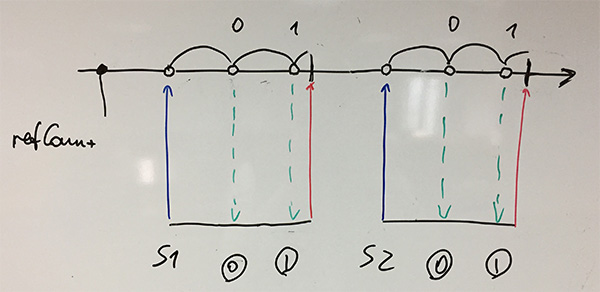 0 1 0 1
refCount
S1 0 1 S2 0 1